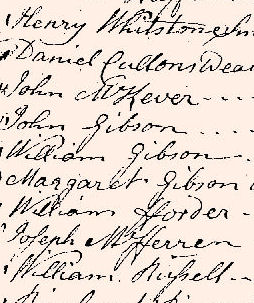 Henry Whitstone
Daniel Cullons
John McKever ----
John Gibson ....
William Gibson
Margaret Gibson
William Hforder -
Joseph McHerren
William Russell -